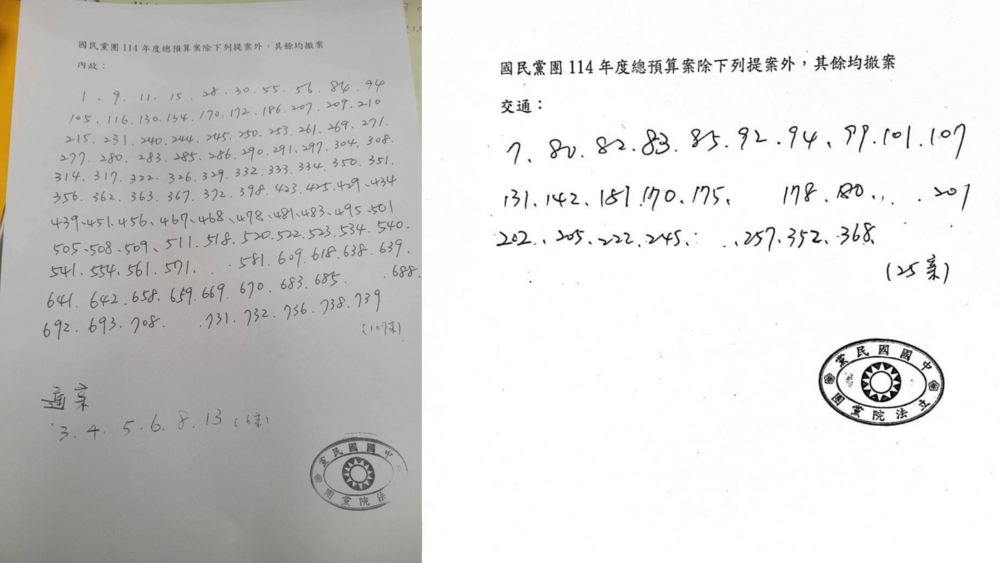 國民黨團 114 年度總預算案除下列提案外，其餘均撤案
內政：
1、9、11、15、28、30、55、56、84、94
105、116、130、134、170、172、186、207、209、210
215、231、240、244、245、250、253、261、269、271
277、280、283、285、286、290、291、297、304、308
314、317、322、326、329、332、333、334、350、351
356、362、363、367、372、398、423、425、429、434
439、451、456、467、468、478、481、483、495、501
505、508、509、511、518、520、522、523、534、540
541、554、561、571、581、609、618、638、639
641、642、658、659、669、670、683、685、688
692、693、708、731、732、736、738、739
(107案)
通案
3、4、5、6、8、13 (6案)
中國國民黨
立法院黨團
國民黨團 114 年度總預算案除下列提案外，其餘均撤案
交通：
7、80、82、83、85、92、94、99、101、107
131、142、151、170、175、178、180、201
202、205、222、245、257、352、368
(25案)
中國國民黨
立法院黨團